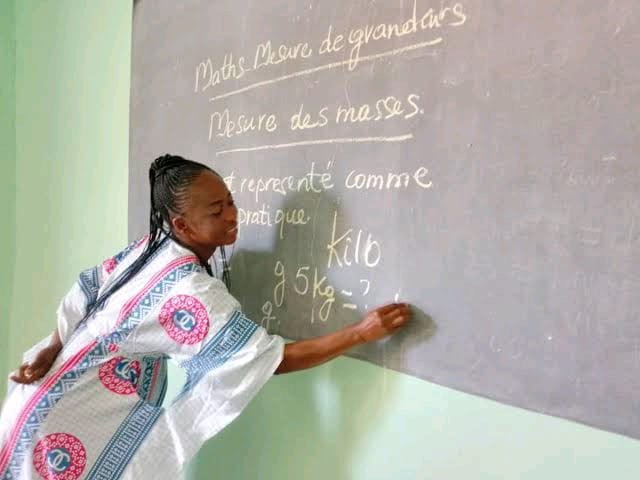 Maths Mesure de grandeurs
Mesure des masses.
t représenté comme
pratique
Kilo
g 5kg = ?
g